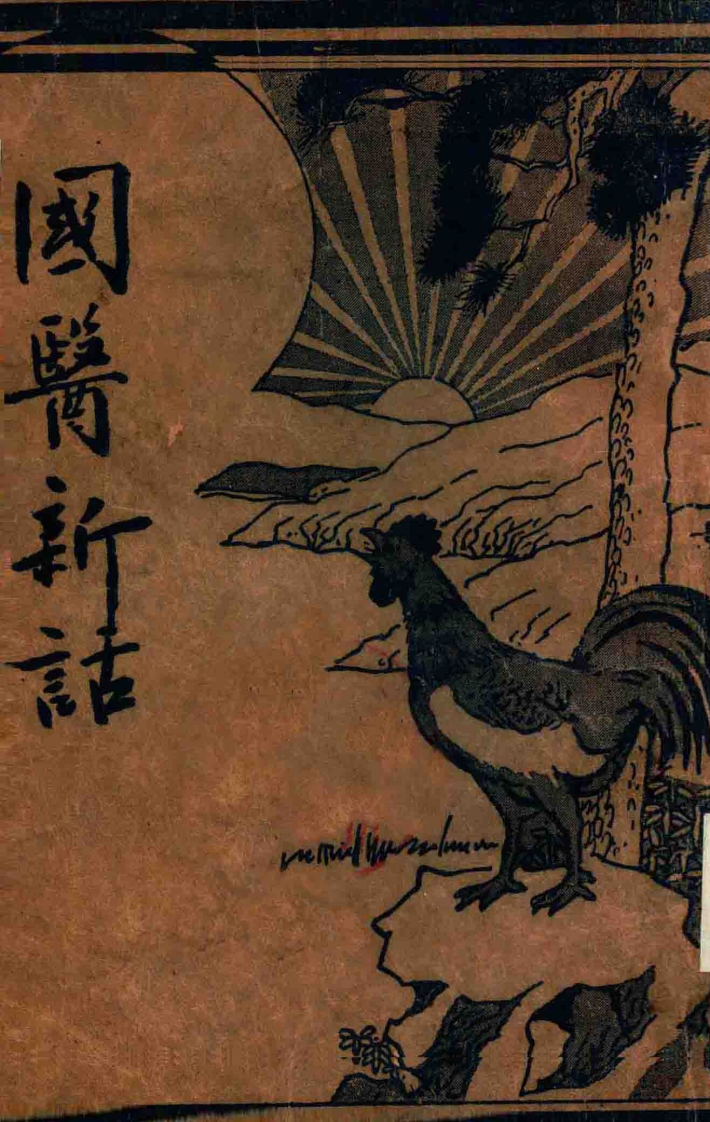 國醫新話